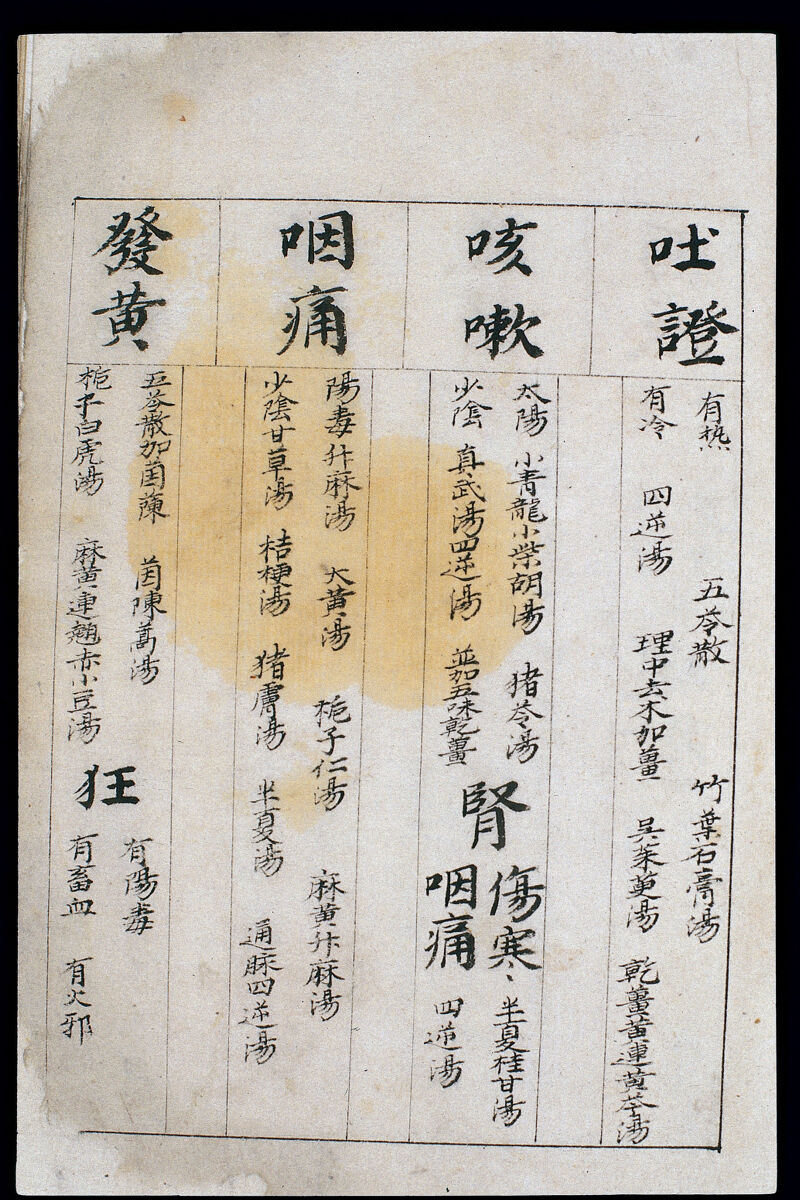 吐證
有热 五苓散 竹葉石膏湯
有冷 四逆湯 理中去朮加薑 吳茱萸湯 乾薑黃連黃芩湯
咳嗽
太陽 小青龍小柴胡湯 猪苓湯
少陰 真武湯四逆湯 並加五味乾薑
腎傷寒、咽痛
半夏桂甘湯
四逆湯
咽痛
陽毒升麻湯 大黃湯 梔子仁湯 麻黃升麻湯
少陰甘草湯 桔梗湯 猪膚湯 半夏湯 通脉四逆湯
發黃
五苓散加茵蔯 茵陳蒿湯
梔子白虎湯 麻黃連翹赤小豆湯
狂
有陽毒
有畜血 有火邪